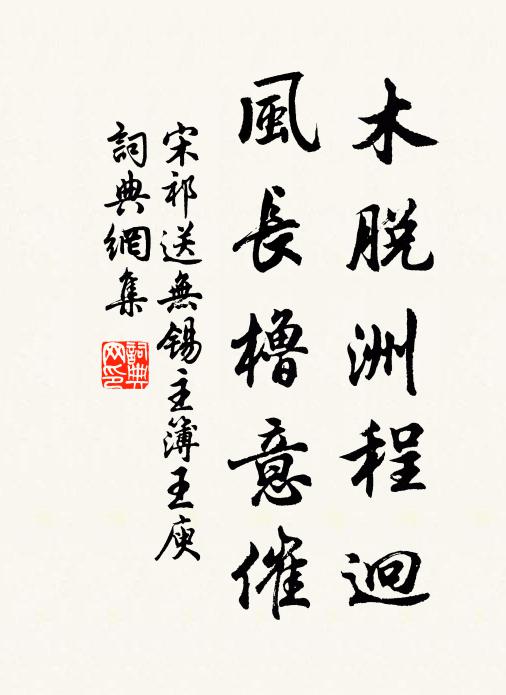 木脱洲程迥
風長櫓意催
宋祁送無錫主簿王庾
詞典網集
詞典网印